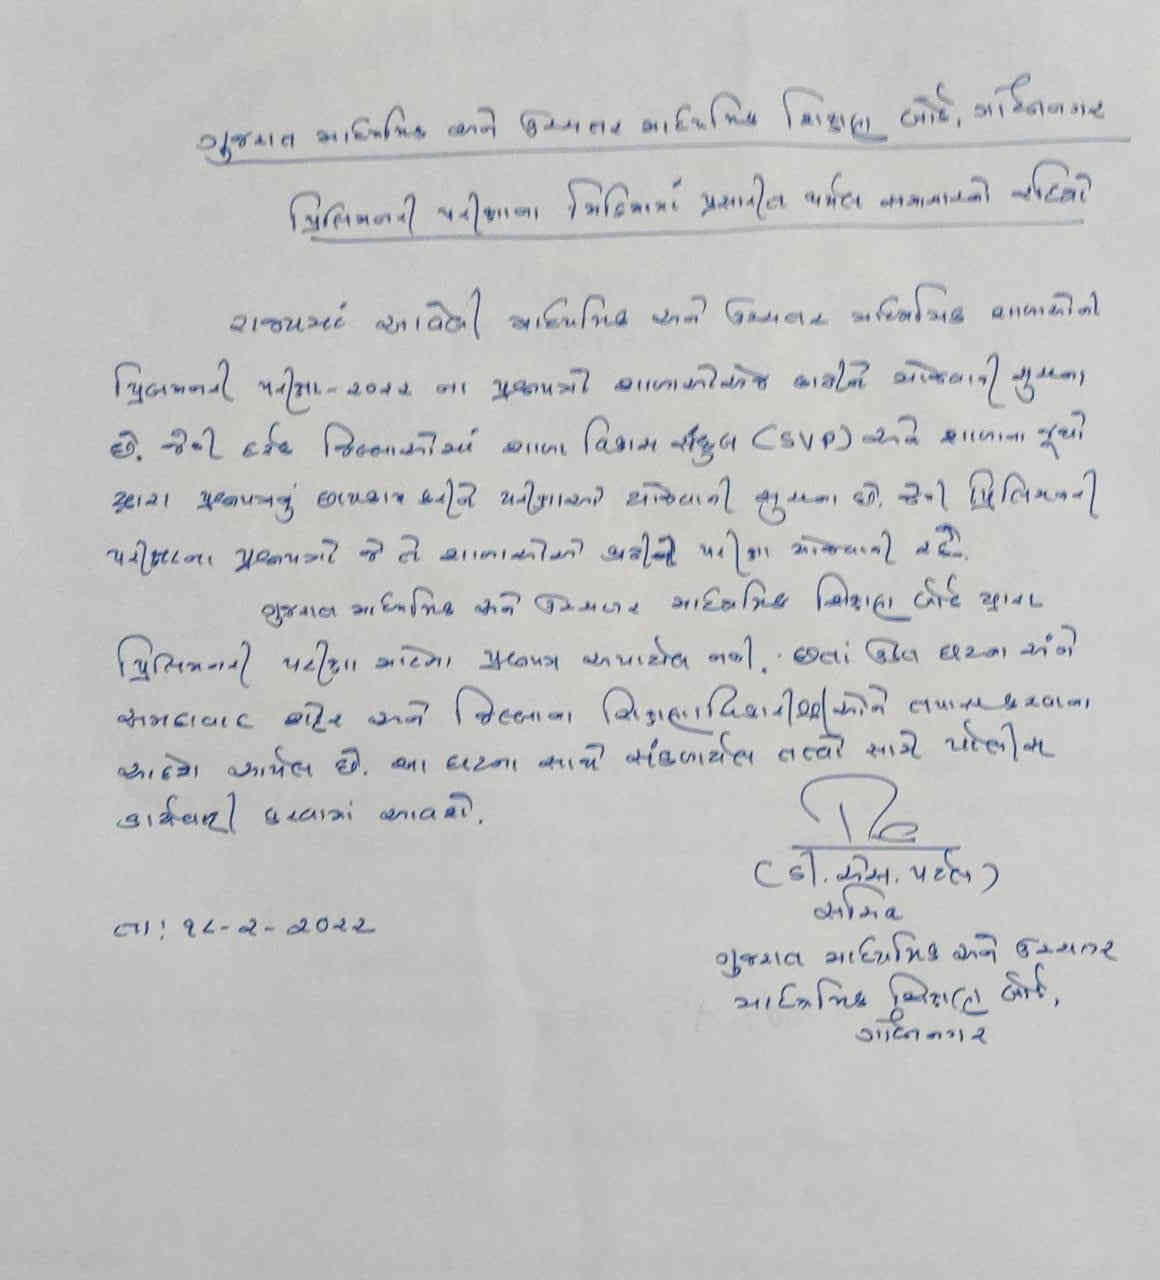 ગુજરાત માધ્યમિક અને ઉચ્ચતર માધ્યમિક શિક્ષણ બોર્ડ, ગાંધીનગર
પ્રિલિમનરી પરીક્ષાના મિડિયામાં પ્રસારીત થયેલ સમાચારનો રદિયો
રાજ્યમાં આવેલી માધ્યમિક અને ઉચ્ચતર માધ્યમિક શાળાઓની
પ્રિલમનરી પરીક્ષા-૨૦૨૨ ના પ્રશ્નપત્રો શાળાઓએજ કાઢીને યોજવાની સુચના
છે. જેની દરેક જિલ્લાઓમાં શાળા વિકાસ સંકુલ (SVP) અને શાળાના જૂથો
દ્વારા પ્રશ્નપત્રનું છાપકામ કરીને પરીક્ષાઓ યોજવાની સુચના છે. જેની પ્રિલિમનરી
પરીક્ષાના પ્રશ્નપત્રો જે તે શાળાઓએ કાઢીને પરીક્ષા યોજવાની રહે છે.
ગુજરાત માધ્યમિક અને ઉચ્ચતર માધ્યમિક શિક્ષણ બોર્ડ દ્વારા
પ્રિલિમનરી પરીક્ષા માટેના પ્રશ્નપત્ર અપાયેલ નથી. છતાં ઉક્ત ઘટના અંગે
અમદાવાદ શહેર અને જિલ્લાના શિક્ષણાધિકારીશ્રીઓને તપાસ કરવાના
આદેશ આપેલ છે. આ ઘટના સાથે સંકળાયેલ તત્વો સામે પોલીસ
કાર્યવાહી કરવામાં આવશે.
(ડી. એસ. પટેલ)
સચિવ
તા: ૧૮-૨-૨૦૨૨
ગુજરાત માધ્યમિક અને ઉચ્ચતર
માધ્યમિક શિક્ષણ બોર્ડ,
ગાંધીનગર